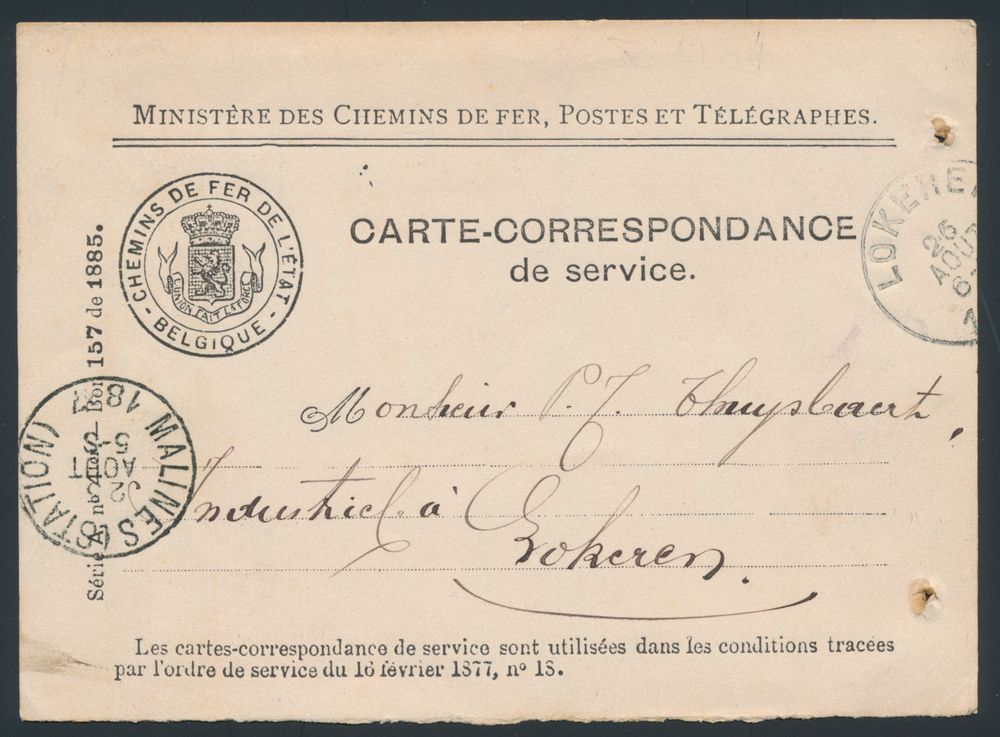 MINISTÈRE DES CHEMINS DE FER, POSTES ET TÉLÉGRAPHES.
CHEMINS DE FER DE L'ÉTAT
- BELGIQUE -
L'UNION FAIT LA FORCE
CARTE-CORRESPONDANCE
de service.
LOKERE
26
AOUT
6
Bon 157 de 1885.
Série A, nº
MALINES (STATION)
AOUT
5-S
188
Monsieur P. J. Thuysbaert,
Industriel à
Lokeren.
Les cartes-correspondance de service sont utilisées dans les conditions tracées
par l'ordre de service du 16 février 1877, nº 18.